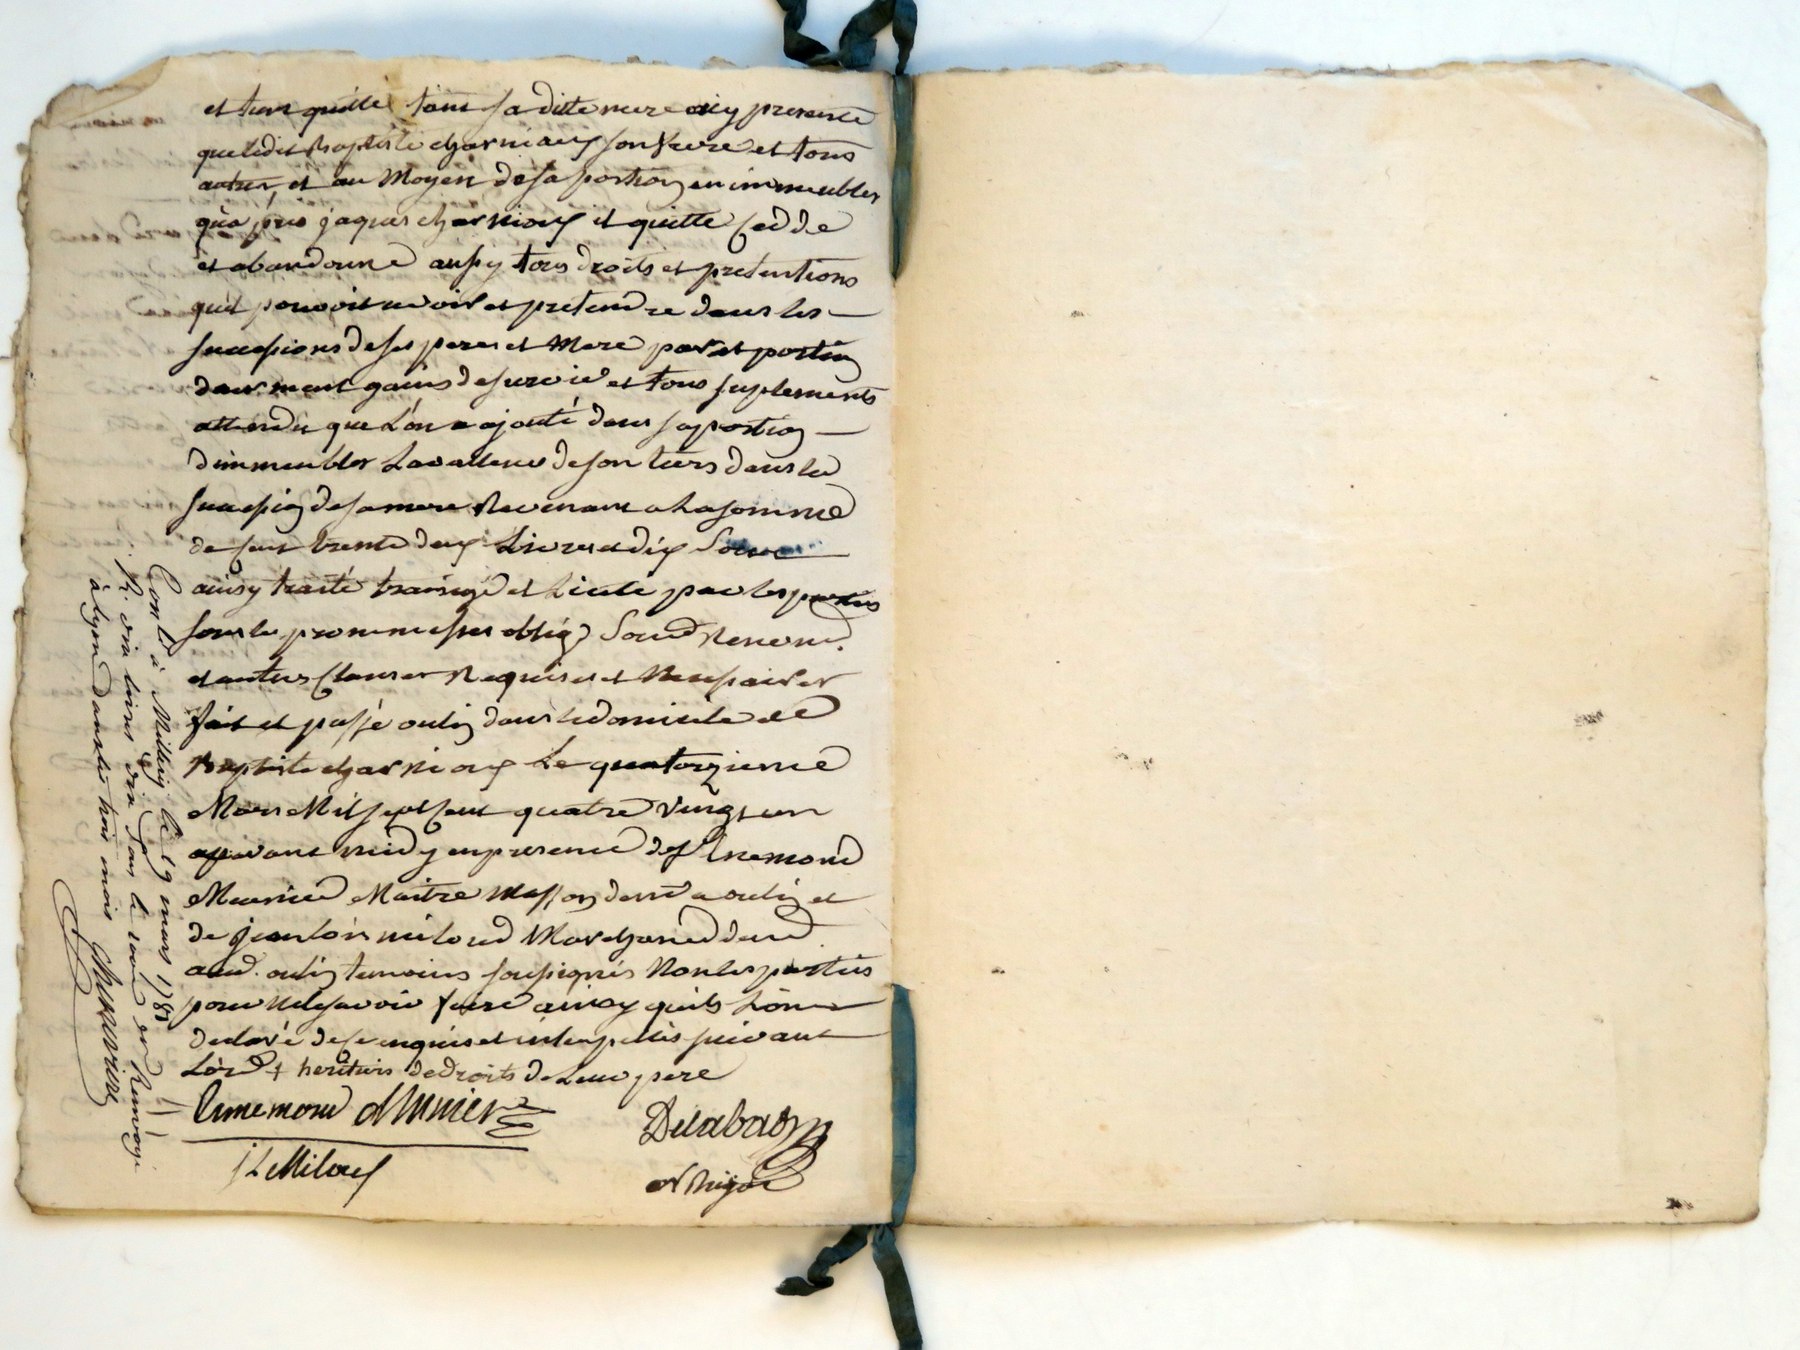 et tien quitte tant sa ditte mere icy presente
que ledit Baptiste charnioux son frere et tous
autres, et au Moyen de sa portion en immeubles
qu'a pris jaques charnioux il quitte cedde
et abandonne aussy tous droits et pretentions
qu'il pouvoit avoir et pretendre dans les
successions de ses pere et Mere part et portion
daugment gains de survie et tous suplements
attendu que L'on a ajouté dans sa portion
d'immeubles La valleur de son tiers dans la
succession de sa mere Revenant a La somme
de cent trente deux Livres et dix Sous
ainsy traité transigé et Licité par les parties
sous les prommesses obligõ Soumõ Renonõ.
et autres Clauses Requises et Necessaires
fait et passé oulin dans le domicile de
Baptiste charnioux Le quatorzieme
Mars Mil sept cent quatre vingt un
avant midy en presence de Ennemond
Meunier Maitre Masson demt a oulin et
de jean Loüis miloud Marchand demt
aud. oulin temoins soussignés Non les parties
pour ne sçavoir faire ainsy quils L'ont
declaré de ce enquis et interpellés suivant
L'ord + heritiers de droits de Leur pere
Ennemond Munier
J L Miloud
Con lé à Millery le 19 mars 1781
à lyon dans trois mois